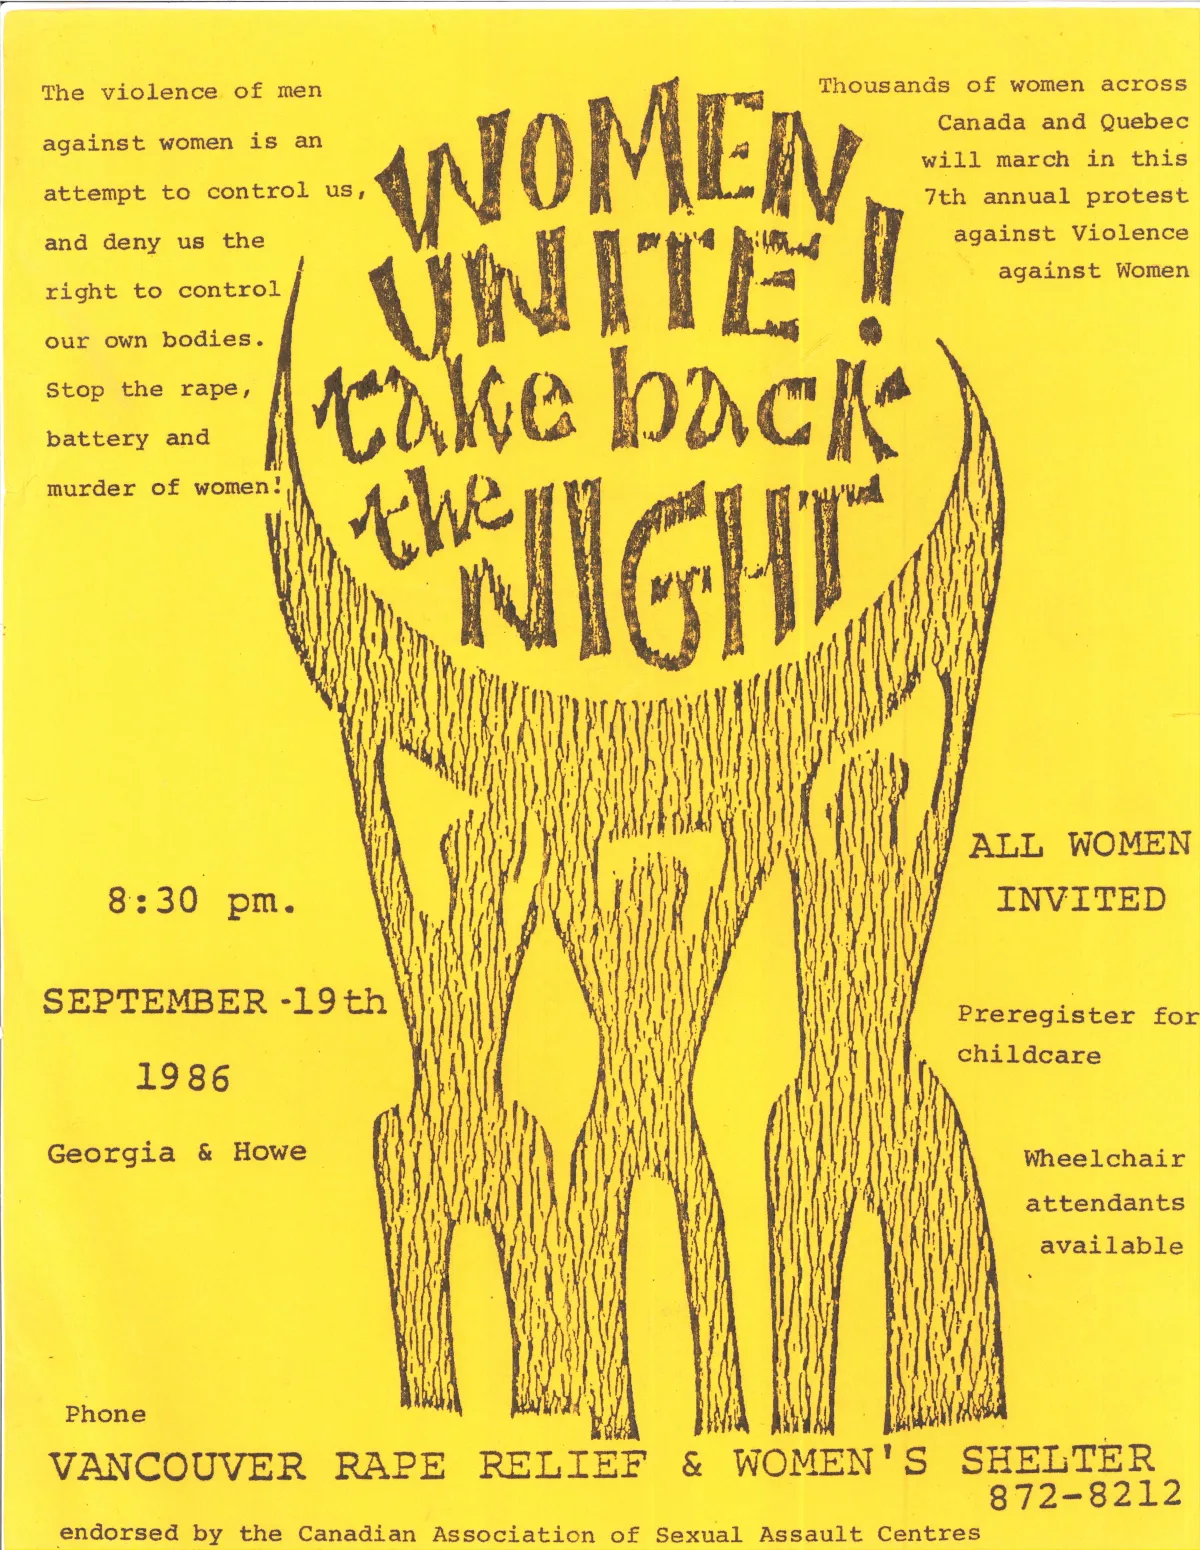 The violence of men
against women is an
attempt to control us,
and deny us the
right to control
our own bodies.
Stop the rape,
battery and
murder of women!
WOMEN
UNITE!
take back
the
NIGHT
Thousands of women across
Canada and Quebec
will march in this
7th annual protest
against Violence
against Women
8:30 pm.
SEPTEMBER -19th
1986
Georgia & Howe
ALL WOMEN
INVITED
Preregister for
childcare
Wheelchair
attendants
available
Phone
VANCOUVER RAPE RELIEF & WOMEN'S SHELTER
872-8212
endorsed by the Canadian Association of Sexual Assault Centres